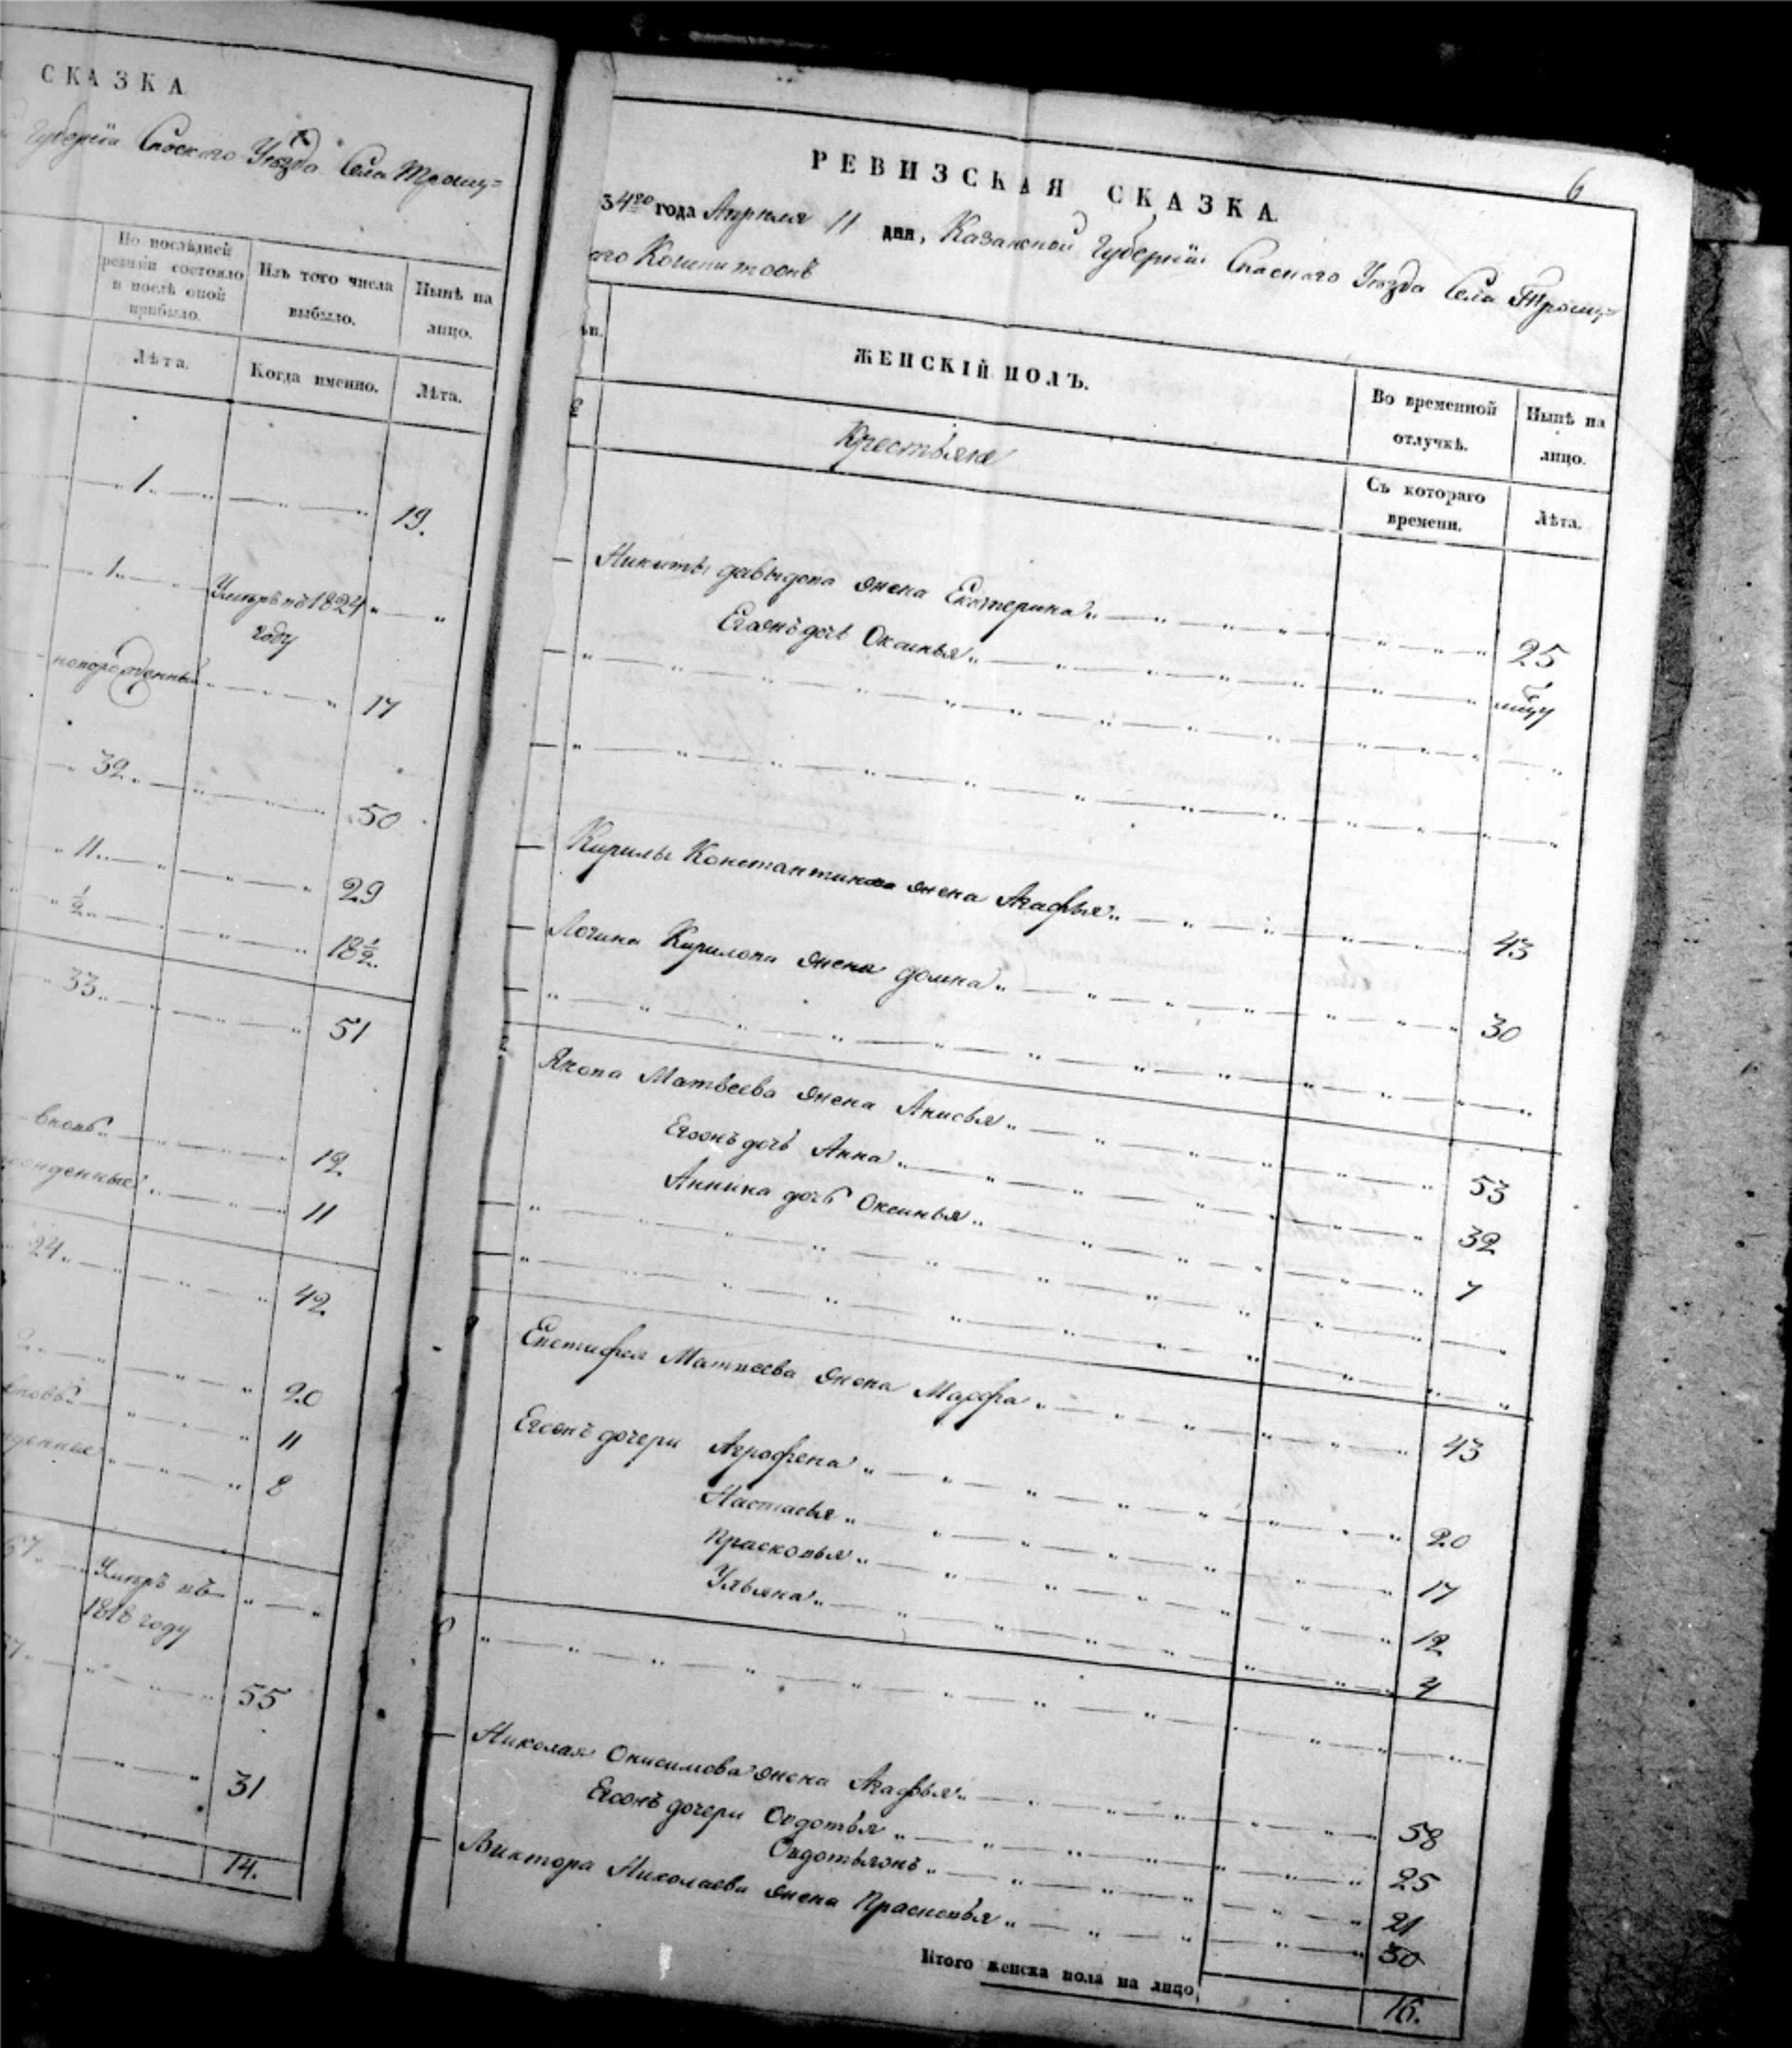 СКАЗКА
Губернiи Спаскаго Уѣзда Села Троиц=
По послѣдней
ревизiи состояло
и послѣ оной
прибыло.
Изъ того числа
выбыло.
Нынѣ на
лицо.
Лѣта.
Когда именно.
Лѣта.
1 19.
1 Умеръ въ 1824
году
новорожденный 17
32 50
11 29
½ 18½
33 51
вновь 12
рожденные 11
24 42
2 20
вновь 11
рожденные 8
67 Умеръ въ
1818 году
55
31
14.
6
РЕВИЗСКАЯ СКАЗКА
34го года Апрѣля 11 дня, Казанской Губернiи Спаскаго Уѣзда Села Троиц=
ЖЕНСКIЙ ПОЛЪ.
Во временной
отлучкѣ.
Нынѣ на
лицо.
Съ котораго
времени.
Лѣта.
Крестьяне
Никиты Давыдова жена Екатерина 25
Егожъ дочь Оксинья
Кирилы Константинова жена Агафья 43
Логина Кирилова жена Домна 30
Якова Матвеева жена Анисья 53
Егожъ дочь Анна 32
Аннина дочь Оксинья 7
Евстифея Матвеева жена Марфа 43
Егожъ дочери Агрофена 20
Настасья 17
Прасковья 12
Ульяна 4
Николая Онисимова жена Агафья 58
Егожъ дочери Овдотья 25
Овдотьяжъ 21
Виктора Николаева жена Прасковья 30
Итого женска пола на лицо 16.